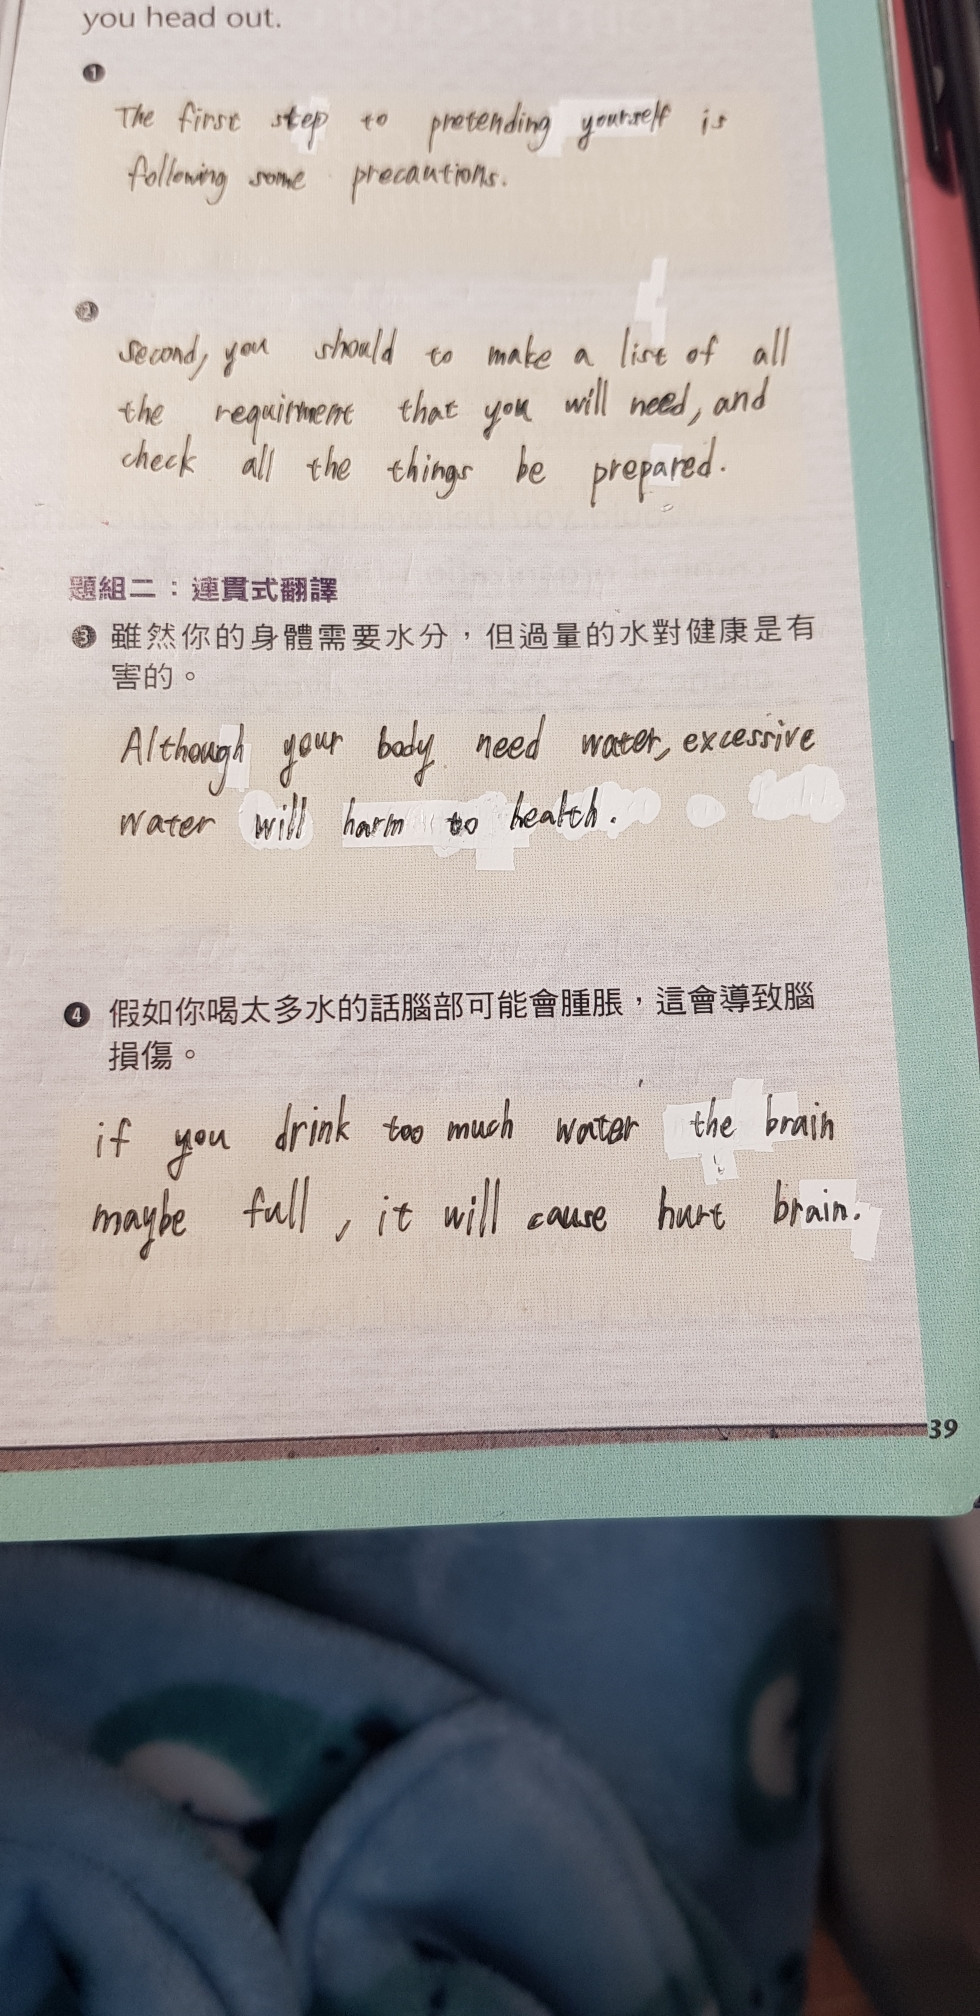 you head out.
❶
The first step to pretending yourself is
following some precautions.
❷
second, you should to make a list of all
the requirment that you will need, and
check all the things be prepared.
題組二：連貫式翻譯
❸ 雖然你的身體需要水分，但過量的水對健康是有
害的。
Although your body need water, excessive
water will harm to health.
❹ 假如你喝太多水的話腦部可能會腫脹，這會導致腦
損傷。
if you drink too much water the brain
maybe full, it will cause hurt brain.
39